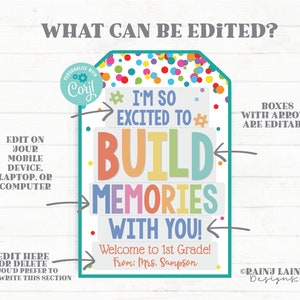 WHAT CAN BE EDITED?
PERSONALIZE WITH
Corjl
I'M SO
EXCITED TO
BUILD
MEMORIES
WITH YOU!
Welcome to 1st Grade!
From: Mrs. Sampson
EDIT ON
YOUR
MOBILE
DEVICE,
LAPTOP, OR
COMPUTER
EDIT HERE
OR DELETE
YOU'D PREFER TO
WRITE THIS SECTION
BOXES
WITH ARROW
ARE EDITABL
©RAINJ LAIN
Designs